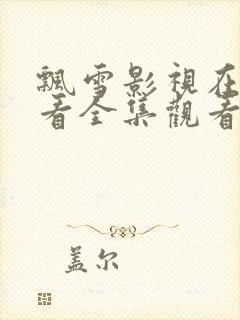 飄雪影視在
看全集觀看
盖尔